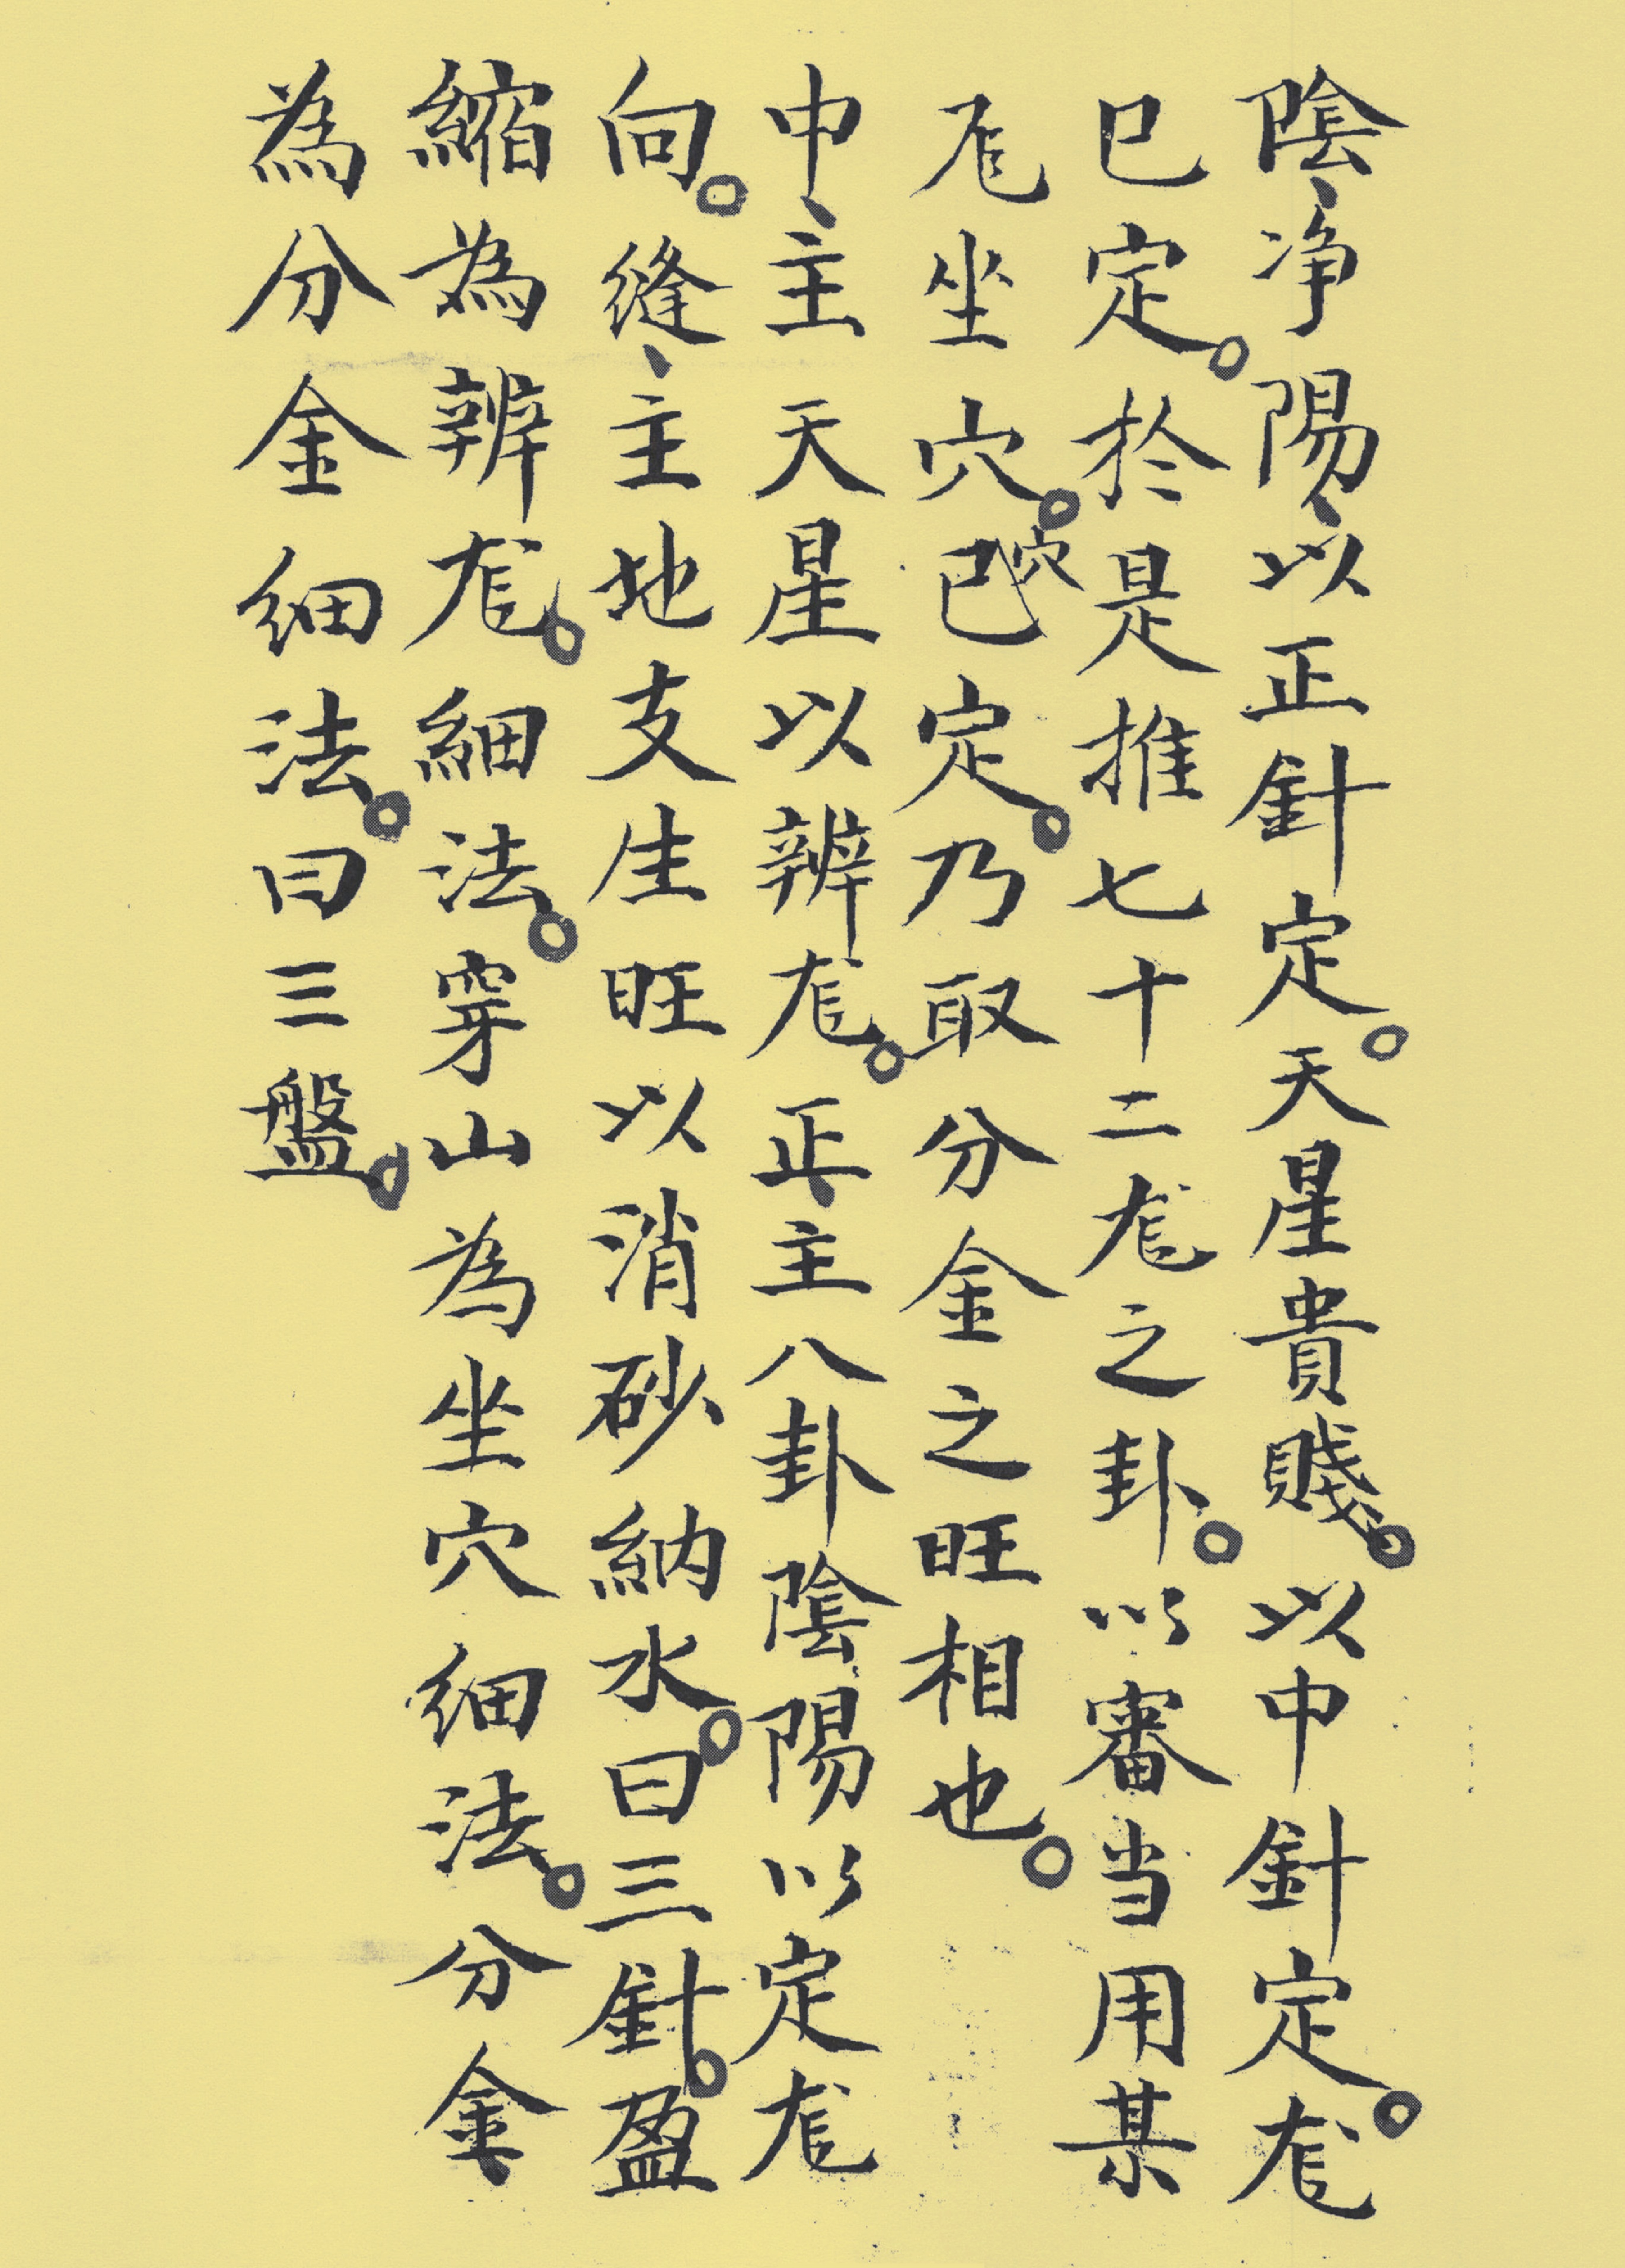 陰、净陽、以正針定。天星貴賤。以中針定。尨
已定。於是推七十二尨之卦。以審当用某
尨坐穴。穴已定。乃取分金之旺相也。
中、主天星以辨尨。正、主八卦陰陽以定尨
向。縫、主地支生旺以消砂納水。曰三針。盈
縮為辨尨。細法。穿山為坐穴细法。分金、
為分金细法。曰三盤。